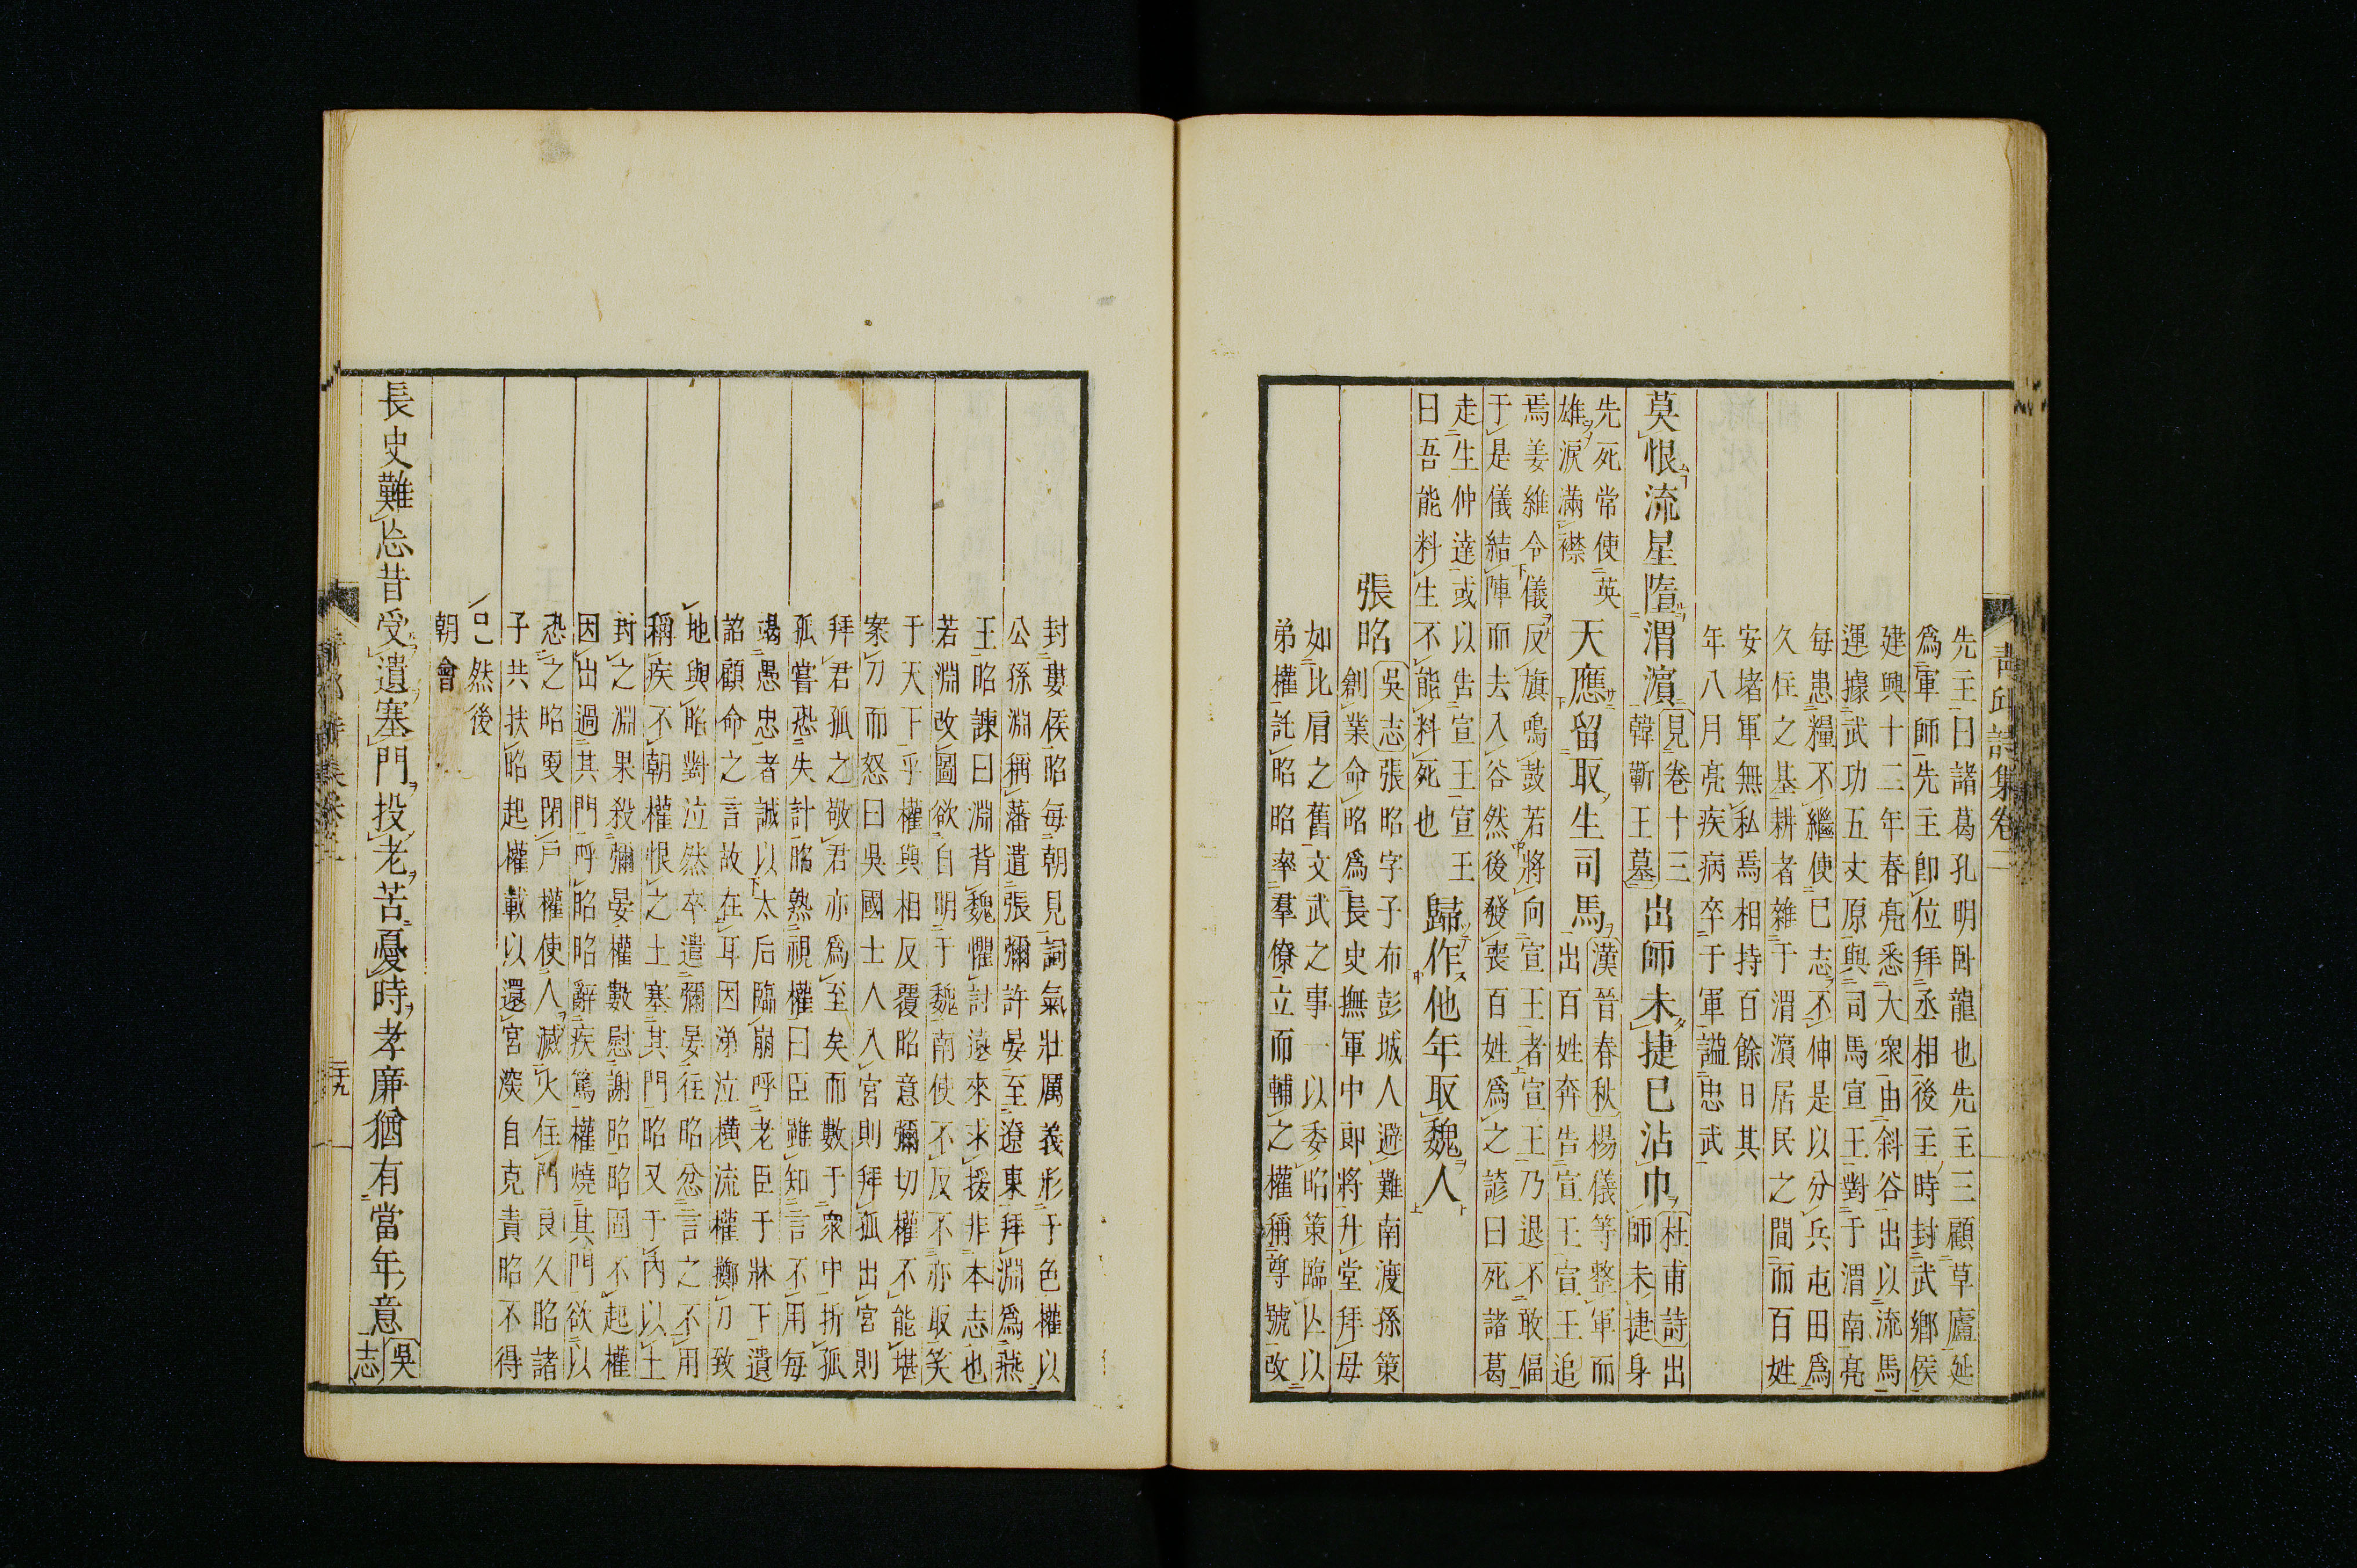 青邱詩集卷二
先主曰諸葛孔明臥龍也先主三顧草廬延
爲軍師先主卽位拜丞相後主時封武鄉侯
建興十二年春亮悉大衆由斜谷出以流馬
運據武功五丈原與司馬宣王對于渭南亮
每患糧不繼使巳志不伸是以分兵屯田爲
久住之基耕者雜于渭濱居民之間而百姓
安堵軍無私焉相持百餘日其
年八月亮疾病卒于軍謚忠武
莫恨流星墮渭濱
見卷十三
韓蘄王墓
出師未捷巳沾巾
杜甫詩出
師未捷身
先死常使英
雄淚滿襟
天應留取生司馬
漢晉春秋楊儀等整軍而
出百姓奔告宣王宣王追
焉姜維令儀反旗鳴鼓若將向宣王者宣王乃退不敢偪
于是儀結陣而去入谷然後發喪百姓爲之諺曰死諸葛
走生仲達或以告宣王宣王
曰吾能料生不能料死也
歸作他年取魏人
張昭
吳志張昭字子布彭城人避難南渡孫策
創業命昭爲長史撫軍中郎將升堂拜母
如比肩之舊文武之事一以委昭策臨亾以
弟權託昭昭率羣僚立而輔之權稱尊號改
封婁侯昭每朝見詞氣壯厲義形于色權以
公孫淵稱藩遣張彌許晏至遼東拜淵爲燕
王昭諫曰淵背魏懼討遠來求援非本志也
若淵改圖欲自明于魏南使不反不亦取笑
于天下乎權與相反覆昭意彌切權不能堪
案刀而怒曰吳國士人入宮則拜孤出宮則
拜君孤之敬君亦爲至矣而數于衆中折孤
孤嘗恐失計昭熟視權曰臣雖知言不用每
竭愚忠者誠以太后臨崩呼老臣于牀下遺
詔顧命之言故在耳因涕泣橫流權擲刀致
地與昭對泣然卒遣彌晏往昭忿言之不用
稱疾不朝權恨之土塞其門昭又于內以土
封之淵果殺彌晏權數慰謝昭昭固不起權
因出過其門呼昭昭辭疾篤權燒其門欲以
恐之昭更閉戶權使人滅火住門良久昭諸
子共扶昭起權載以還宮深自克責昭不得
巳然後
朝會
長史難忘昔受遺塞門投老苦憂時孝廉猶有當年意
吳
志
二十九